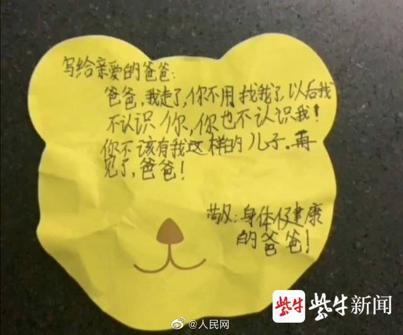 写给亲爱的爸爸：
爸爸,我走了,你不用找我了,以后我
不认识你,你也不认识我！
你不该有我这样的儿子.再
见了,爸爸！
身体健康
的爸爸！
紫牛 紫牛新闻
@人民网